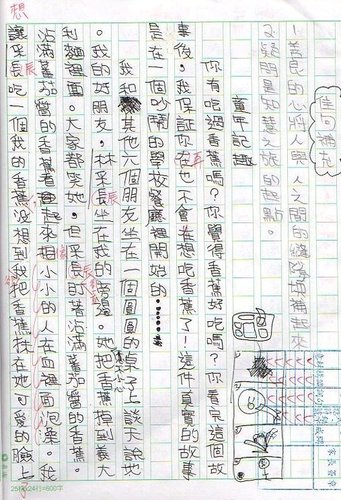 佳句補充
！善良的心將人與人之間的縫隙填補起來
疑問是知慧之旅的起點。
童年記趣
你有吃過香蕉嗎？你覺得香蕉好吃嗎？你看完這個故
事後，我保証你在也不會想吃香蕉了！這件真實的故事
是在一個吵鬧的學校餐廳裡開始的......
我和其他六個朋友坐在一個圓圓的桌子上談天說地
。我的好朋友，林采長坐在我的旁邊。她把香蕉掉到義大
利麵裡面。大家都笑她。但采長的沾滿蕃茄醬的香蕉。
沾滿蕃茄醬的香蕉看起來相小小的人在血裡面泡澡。我
讓采長吃一個我的香蕉沒想到我把香蕉抹在她可愛的臉上
家長簽章